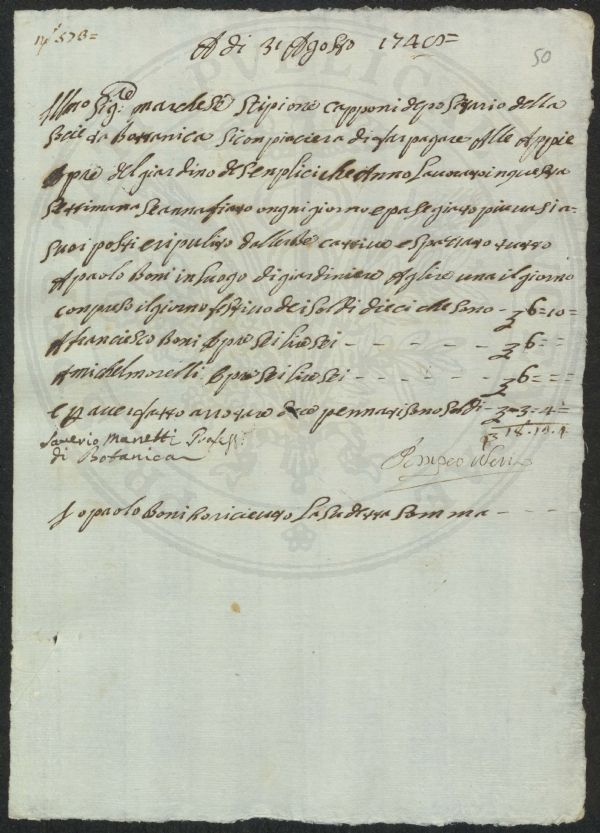 N° 573=
A di 31 Agosto 174
50
Illmo Sigre: marchese Scipione capponi depositario della
Società Bottanica Si conpiacierà di far pagare Alle Appie
opre del giardino de Senplici che Anno Lavorato in questa
Settimana Se annafiato ongni giorno e pasegiato piu vasi a
Suoi posti e ripulito dall erbe cattive e Spazzato tutto
A paolo Boni in luogo di giardiniere A lire una il giorno
conpreso il giorno festivo de i Soldi dieci che Sono - 6=10=
A franciesco Boni opre Sei lire Sei - - - - - 6= =
A michel morelli opre Sei lire Sei - - - - - 6= = =
e p aver fatto arrotare pennati Sono Soldi -
Saverio Manetti Profess:
di Botanica
18.13.4
Pompeo Neri
Io paolo Boni ho ricieuto La Sudetta Somma - - -
PVBBLICA